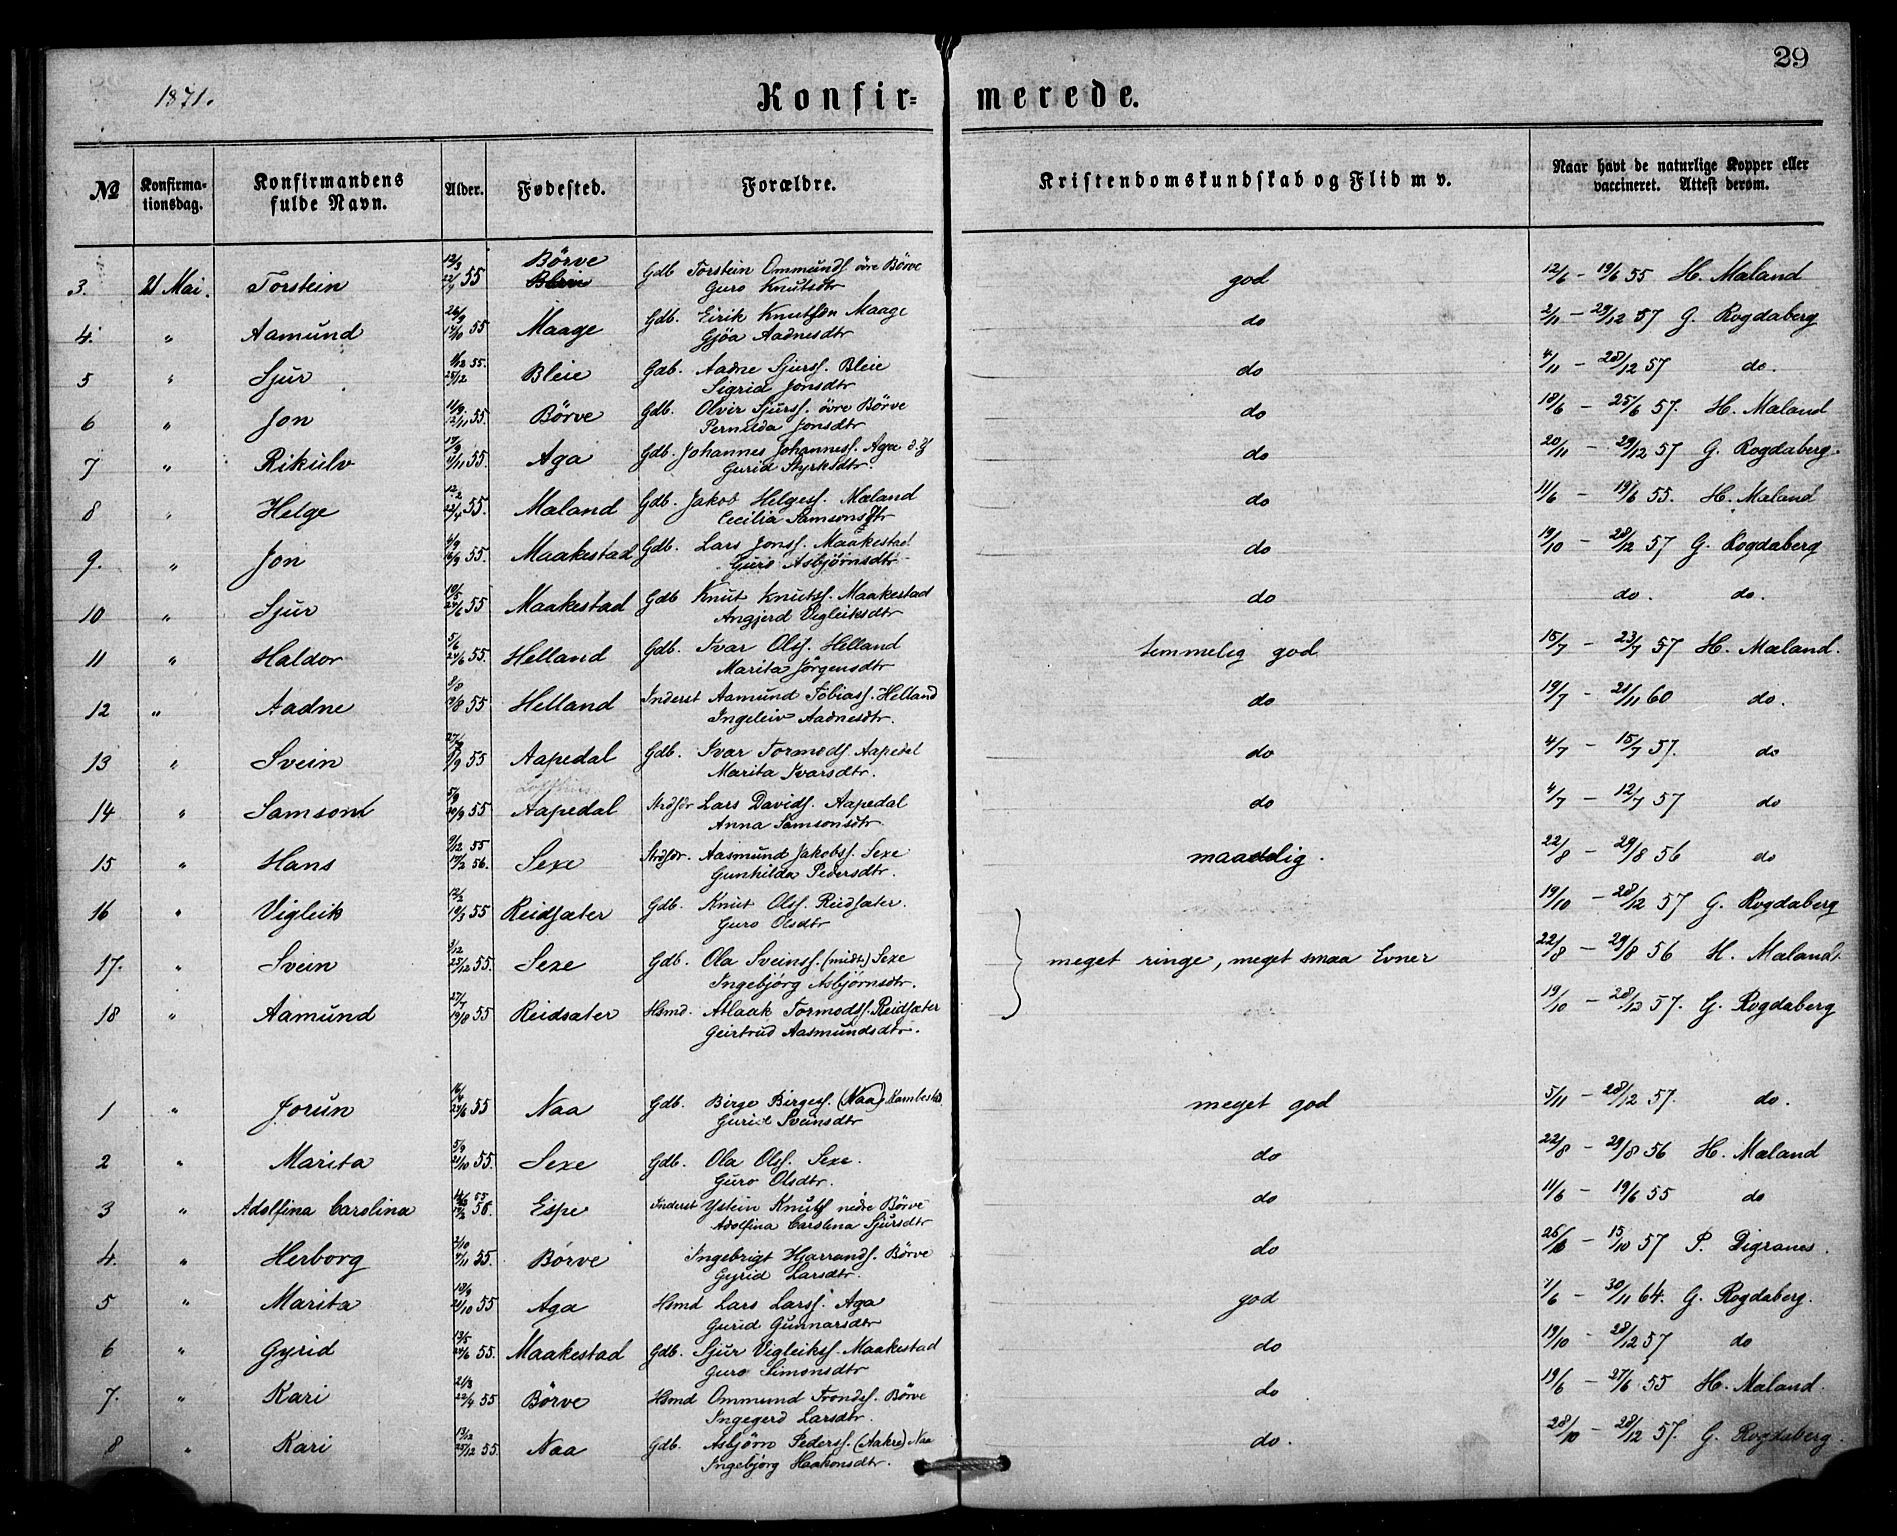 29
1871.
Konfir= merede.
No Konfirma-tionsdag. Konfirmandens fulde Navn. Alder. Fødested. Forældre. Kristendomskundskab og Flid m v. Naar havt de naturlige Kopper eller vaccineret. Attest derom.
3. 21 Mai. Torstein 12/3 22/4 55 Börve Gdb Torstein Ommunds. övre Börve god 12/6 – 19/6 55 H. Mæland
Guro Knutsdtr
4. " Aamund 26/9 14/10 55 Maage Gdb. Eirik Knutsøn Maage do 2/11 – 29/12 57 G. Rogdaberg
Gjøa Aadnesdtr
5 " Sjur 1/12 55. 25/12 Bleie Gdb. Aadne Sjurss. Bleie do 4/11 – 28/12 57 do.
Sigrid Jonsdtr
6 " Jon 11/9 12/11 55 Börve Gdb. Olvir Sjurss. övre Börve do 18/6 – 25/6 57. H. Mæland
Pernilda Jonsdtr
7 " Rikulv 55. Aga Gdb. Johannes Johanness. Aga do 20/11 – 29/12 57 G. Rogdaberg.
Gurid Styrksdtr.
8 " Helge 12/2 55. Mæland Gdb. Jakob Helgess. Mæland do 11/6 – 19/6 55. H. Mæland
Cecilia Samsonsdtr
9. " Jon 55. Maakestad Gdb. Lars Jonss. Maakestad do 19/10 – 28/12 57 G. Rogdaberg
Guro Asbjörnsdtr
10 " Sjur 24/6 55 Maakestad Gdb Knut Knutss. Maakestad do do. do.
Angjerd Vigleiksdtr
11 " Haldor 5/6 24/6 55. Helland Gdb. Ivar Olss. Helland temmelig god 15/7 – 23/7 57 H. Mæland.
Marita Jörgensdtr
12 " Aadne 3/8 19/8 55 Helland Inderst Aamund Tobiass. Helland do 19/7 – 21/11 60 do.
Ingeleiv Aadnesdtr.
13 " Svein 55 Aapedal Gdb. Ivar Tormods. Aapedal do 4/7 – 15/7 57. do
Marita Ivarsdtr.
14 " Samson 5/9 20/9 55 Aapedal Strdsdr Lars Davids. Aapedal do 4/7 – 12/7 57 do
Anna Samsonsdtr.
15 " Hans 9/12 55 17/2 56. Sexe Strdsdr. Aasmund Jakobss. Sexe maadelig. 22/8 – 29/8 56 do
Gunhilda Pedersdtr.
16 " Vigleik 12/2 19/3 55 Reidsæter Gdb. Knut Olss. Reidsæter. 19/10 – 28/12 57 G. Rogdaberg
Guro Olsdtr
17. " Svein 3/12 25/12 55. Sexe Gdb. Ola Sveinss. (midt.) Sexe meget ringe, meget smaa Evner 22/8 – 29/8 56 H. Mæland.
Ingebjörg Asbjörnsdtr.
18 " Aamund 27/7 19/8 55 Reidsæter Hsmd. Aslaak Tormodss. Reidsæter 19/10 – 28/12 57. G. Rogdaberg
Geirtrud Aasmundsdtr.
1 " Jorun 24/6 55 Naa Gdb. Birge Birgess. (Naa) Kambestad meget god 5/11 – 28/12 57. do.
Gurid Sveinsdtr
2 " Marita 5/9 21/10 55. Sexe Gdb. Ola Olss. Sexe. do 22/8 – 29/8 56 H. Mæland
Guro Olsdtr.
3 " Adolfina Carolina 55 56. Espe Inderst Ystein Knuts nedre Börve do 11/6 – 19/6 55 do
Adolfina Carolina Sjursdtr
4. " Herborg 2/10 4/11 55. Börve Ingebrigt Hjarrands. Börve do – 15/10 57 P. Digranes.
Gyrid Larsdtr.
5 " Marita 13/9 21/10 55 Aga Hsmd Lars Larss. Aga god 7/6 – 30/11 64. G. Rogdaberg.
Gurid Gunnarsdtr
6 " Gyrid 13/5 24/6 55. Maakestad Gdb. Sjur Vigleikss. Maakestad do 19/10 – 28/12 57 do
Guro Simonsdtr
7. " Kari 21/3 22/4 55 Börve Hsmd Ommund Tronds. Börve do 19/6 – 27/6 55 H. Mæland.
Ingegerd Larsdtr.
8 " Kari 13/12 25/12 55. Naa Gdb. Asbjörn Pederss. (Aakre) Naa do. 28/10 – 28/12 57. G. Rogdaberg.
Ingebjörg Haakonsdtr.